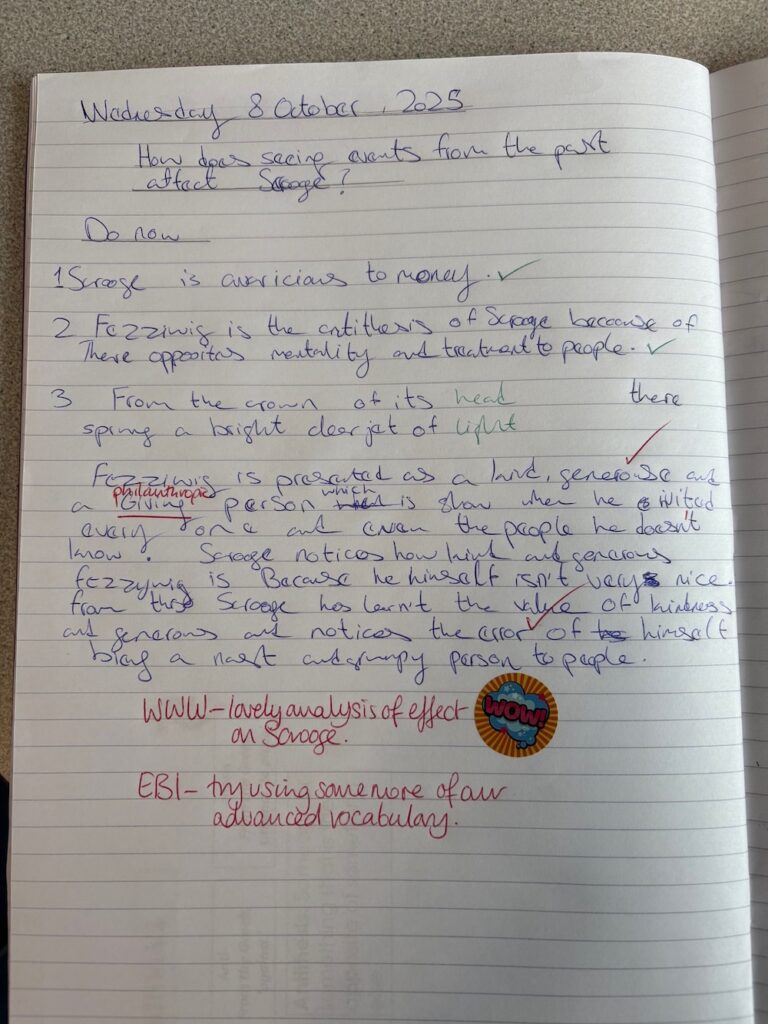 Wednesday 8 October, 2025
How does seeing events from the past
affect Scrooge?
Do now
1 Scrooge is avaricious to money. ✓
2 Fezziwig is the antithesis of Scrooge because of
There oppositns mentality and treatment to people. ✓
3 From the crown of its head there
sprung a bright clear jet of light
Fezziwig is presented as a kind, generouse and
philanthropic which
a Giving person is show when he invited
every one and even the people he doesn't
know. Scrooge notices how kind and generous
fezzywig is Because he himself isn't very nice.
from this Scrooge has learn't the value of kindness
and generous and notices the error of himself
being a and grumpy person to people.
WWW – lovely analysis of effect
on Scrooge.
WOW!
EBI – try using some more of our
advanced vocabulary.